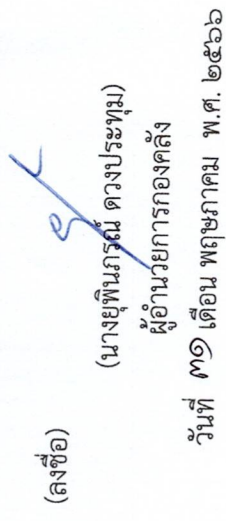 (ลงชื่อ)
(นางยุพินภรณ์ ดวงประทุม)
ผู้อำนวยการกองคลัง
วันที่ ๓๑ เดือน พฤษภาคม พ.ศ. ๒๕๖๖